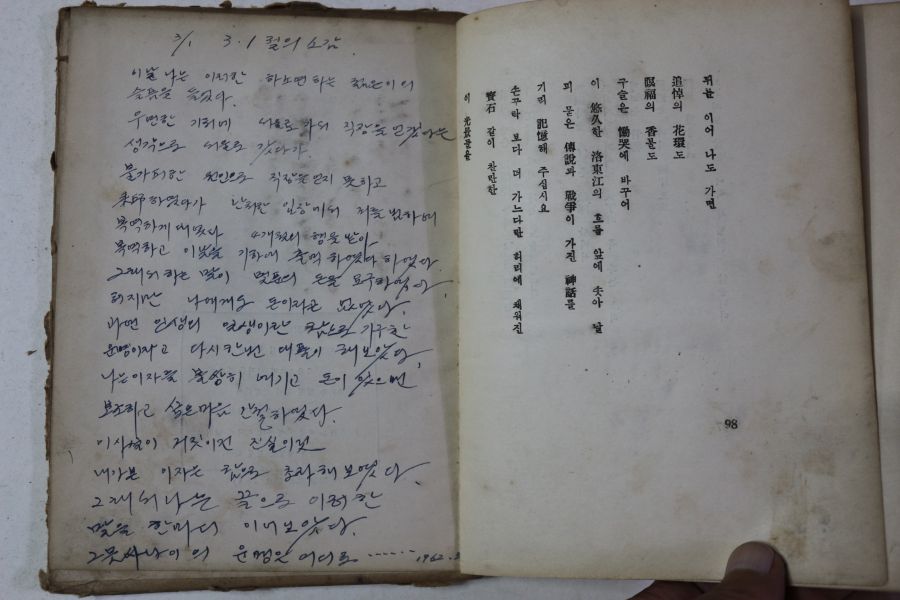 3/1 3.1절의 소감.
이날 나는 이러한 하노면하는 젊은이의
슬픔을 들었다.
우연한 기회에 서울로 와서 직장을 얻겠다는
생각으로 서울로 갔다가
불가피한 원인으로 직장을 얻지 못하고
하였다가
복역하게 되었다 4개월의 형을 받아
복역하고 이날을 기하여 출옥하였다 하였다.
그래서 하는 말이 몇푼의 돈을 요구하였다.
하지만 나에게는 돈이라곤 없었다.
과연 인생의 일생이란 참으로 기구한
운명이라고 다시한번 해보았다.
나는 이자를 불쌍히 여기고 돈이 있으면
보조하고 싶은 마음 간절하였다.
이사실이 거짓이건 진실이건
내가본 이자는 참으로 해보였다.
그래서 나는 끝으로 이러한
말을 한마디
운명은 어디로 ······ 1962.
뒤를 이어 나도 가면
追悼의 花環도
冥福의 香불도
구슬은 慟哭에 바꾸어
이 悠久한 洛東江의 흐름 앞에 솟아 날
피 묻은 傳說과 戰爭이 가진 神話를
기리 記憶해 주십시요
손꾸락 보다 더 가느다란 허리에 채워진
寶石 같이 찬란한
이 光景을
98